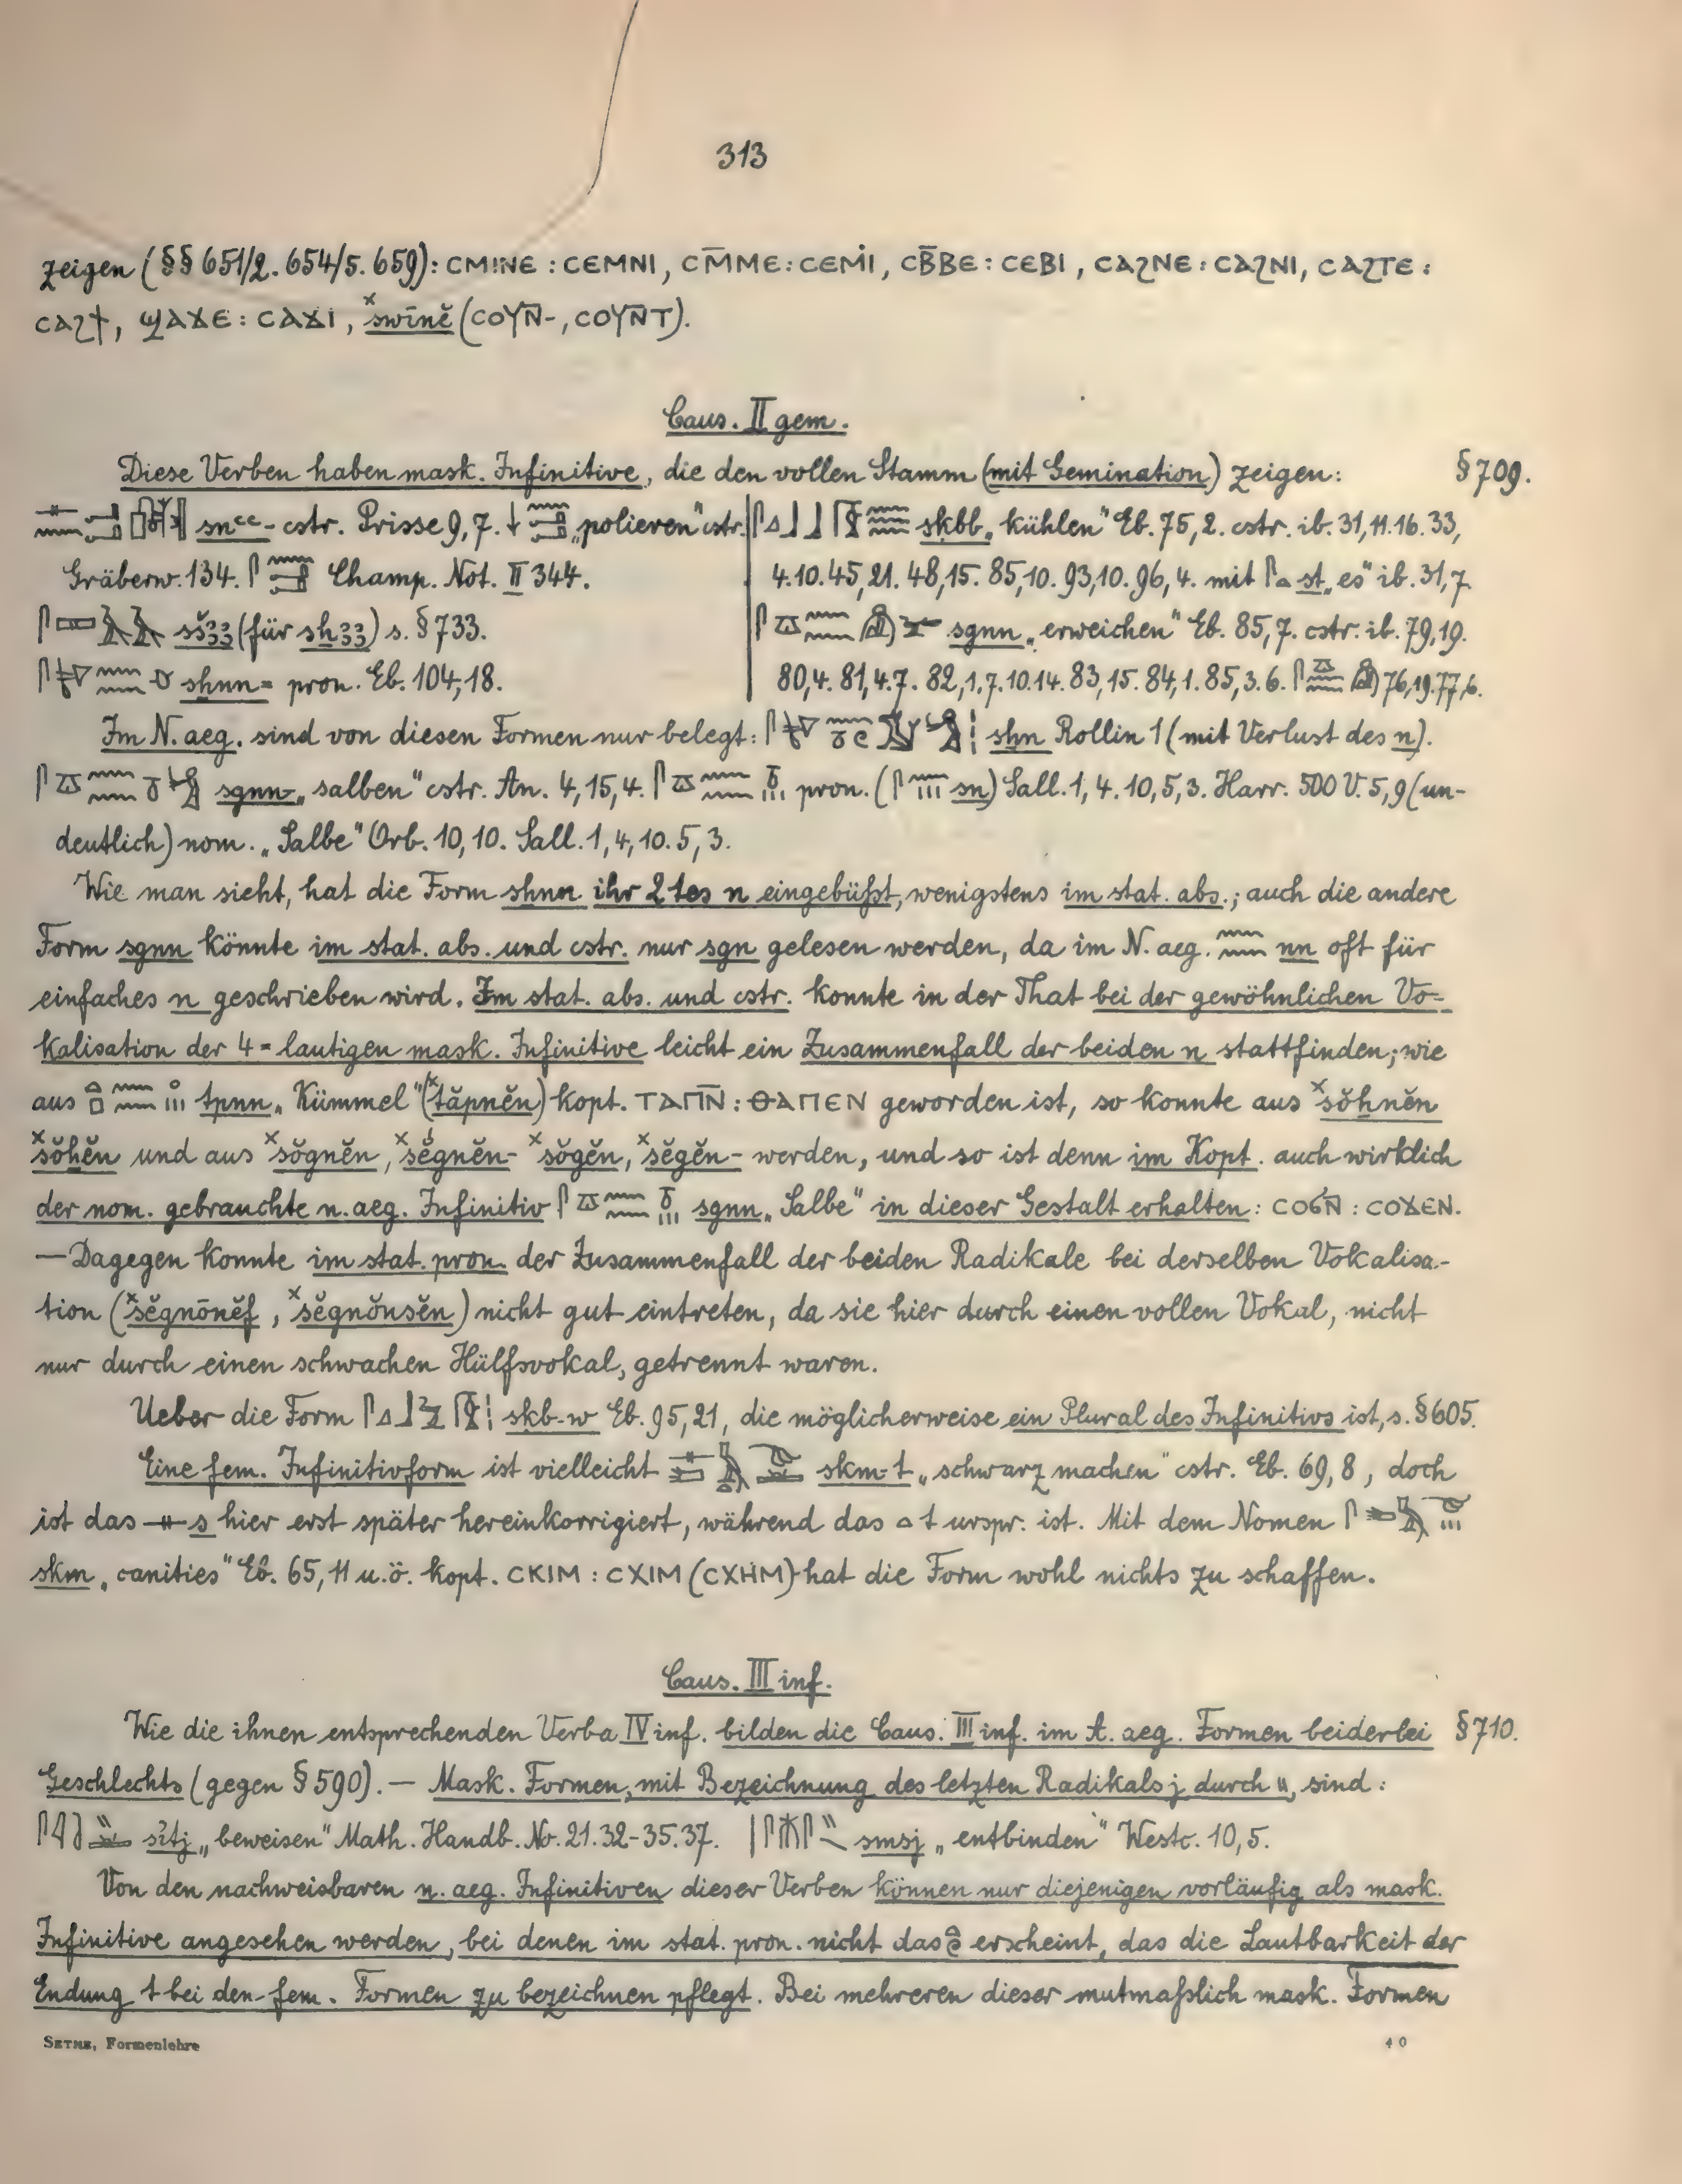 313
zeigen (§§ 651/2. 654/5. 659): ⲤⲘⲒⲚⲈ : ⲤⲈⲘⲚⲒ, ⲤⲘ̄ⲘⲈ : ⲤⲈⲘⲒ, ⲤⲂ̄ⲂⲈ : ⲤⲈⲂⲒ, ⲤⲀϨⲚⲈ : ⲤⲀϨⲚⲒ, ⲤⲀϨⲦⲈ :
ⲤⲀϨϮ, ϢⲀϪⲈ : ⲤⲀϪⲒ, ˣswīnĕ (ⲤⲞⲨⲚ̄-, ⲤⲞⲨⲚ̄Ⲧ).
Caus. II gem.
Diese Verben haben mask. Infinitive, die den vollen Stamm (mit Gemination) zeigen: § 709.
snꜥꜥ- cstr. Prisse 9,7. „polieren" cstr.
Gräberw. 134. Champ. Not. II 344.
sšꜣꜣ (für sḫꜣꜣ) s. § 733.
shnn= pron. Eb. 104,18.
skbb „kühlen" Eb. 75,2. cstr. ib. 31,11.16. 33,
4.10. 45,21. 48,15. 85,10. 93,10. 96,4. mit st „es" ib. 31,7.
sgnn „erweichen" Eb. 85,7. cstr. ib. 79,19.
80,4. 81,4.7. 82,1.7.10.14. 83,15. 84,1. 85,3.6. 76,19. 77,6.
Im N. aeg. sind von diesen Formen nur belegt: shn Rollin 1 (mit Verlust des n).
sgnn- „salben" cstr. An. 4,15,4. pron. (sn) Sall. 1,4.10,5,3. Harr. 500 V. 5,9 (un-
deutlich) nom. „Salbe" Orb. 10,10. Sall. 1,4,10. 5,3.
Wie man sieht, hat die Form shnn ihr 2tes n eingebüßt, wenigstens im stat. abs.; auch die andere
Form sgnn könnte im stat. abs. und cstr. nur sgn gelesen werden, da im N. aeg. nn oft für
einfaches n geschrieben wird. Im stat. abs. und cstr. konnte in der That bei der gewöhnlichen Vo-
kalisation der 4-lautigen mask. Infinitive leicht ein Zusammenfall der beiden n stattfinden; wie
aus tpnn „Kümmel" (ˣtăpnĕn) kopt. ⲦⲀⲠⲚ̄ : ⲐⲀⲠⲈⲚ geworden ist, so konnte aus ˣsŏhnĕn
ˣsŏhĕn und aus ˣsŏgnĕn, ˣsĕgnĕn- ˣsŏgĕn, ˣsĕgĕn- werden, und so ist denn im Kopt. auch wirklich
der nom. gebrauchte n. aeg. Infinitiv sgnn „Salbe" in dieser Gestalt erhalten: ⲤⲞϬⲚ̄ : ⲤⲞϪⲈⲚ.
— Dagegen konnte im stat. pron. der Zusammenfall der beiden Radikale bei derselben Vokalisa-
tion (ˣsĕgnōnĕf, ˣsĕgnŏnsĕn) nicht gut eintreten, da sie hier durch einen vollen Vokal, nicht
nur durch einen schwachen Hülfsvokal, getrennt waren.
Ueber die Form skb-w Eb. 95,21, die möglicherweise ein Plural des Infinitivs ist, s. § 605.
Eine fem. Infinitivform ist vielleicht skm-t „schwarz machen" cstr. Eb. 69,8, doch
ist das s hier erst später hereinkorrigiert, während das t urspr. ist. Mit dem Nomen
skm „canities" Eb. 65,11 u.ö. kopt. ⲤⲔⲒⲘ : ⲤⲬⲒⲘ (ⲤⲬⲎⲘ) hat die Form wohl nichts zu schaffen.
Caus. III inf.
Wie die ihnen entsprechenden Verba IV inf. bilden die Caus. III inf. im A. aeg. Formen beiderlei § 710.
Geschlechts (gegen § 590). — Mask. Formen, mit Bezeichnung des letzten Radikals j durch \\, sind:
sꜥꜣtj „beweisen" Math. Handb. No. 21. 32-35. 37. smsj „entbinden" Westc. 10,5.
Von den nachweisbaren n. aeg. Infinitiven dieser Verben können nur diejenigen vorläufig als mask.
Infinitive angesehen werden, bei denen im stat. pron. nicht das erscheint, das die Lautbarkeit der
Endung t bei den fem. Formen zu bezeichnen pflegt. Bei mehreren dieser mutmaßlich mask. Formen
SETHE, Formenlehre 40